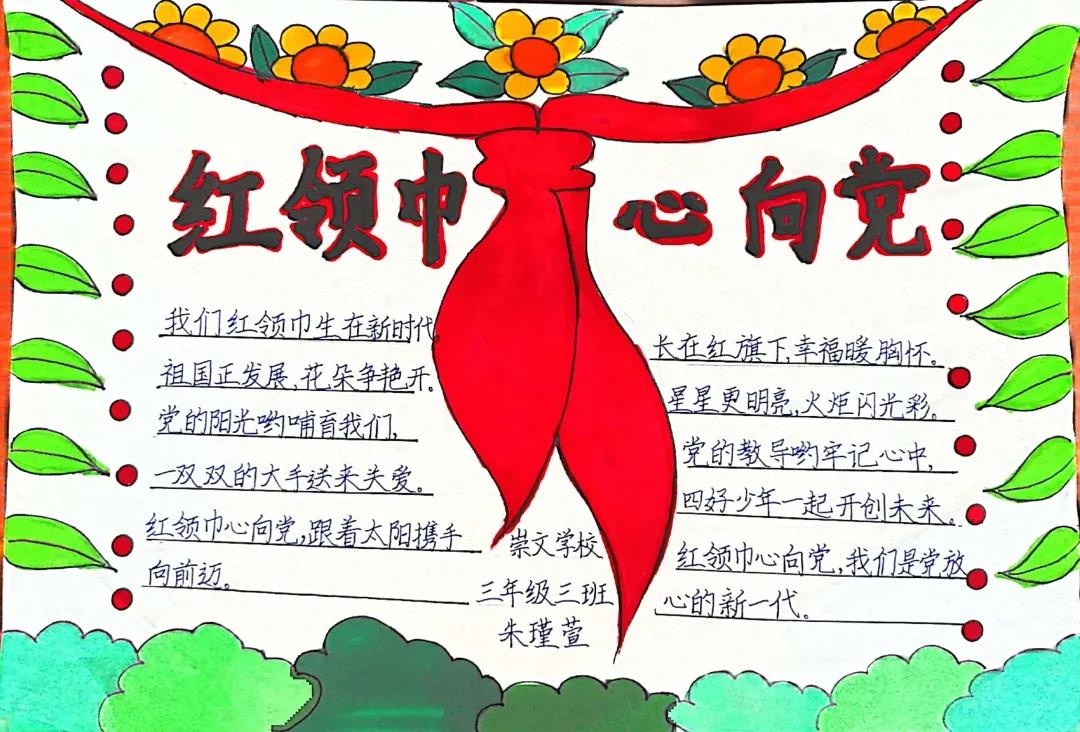 红领巾 心向党
我们红领巾生在新时代
祖国正发展,花朵争艳开。
党的阳光哟哺育我们,
一双双的大手送来关爱。
红领巾心向党,跟着太阳携手
向前迈。
长在红旗下,幸福暖胸怀。
星星更明亮,火炬闪光彩。
党的教导哟牢记心中,
四好少年一起开创未来。
红领巾心向党,我们是党放
心的新一代。
崇文学校
三年级三班
朱瑾萱